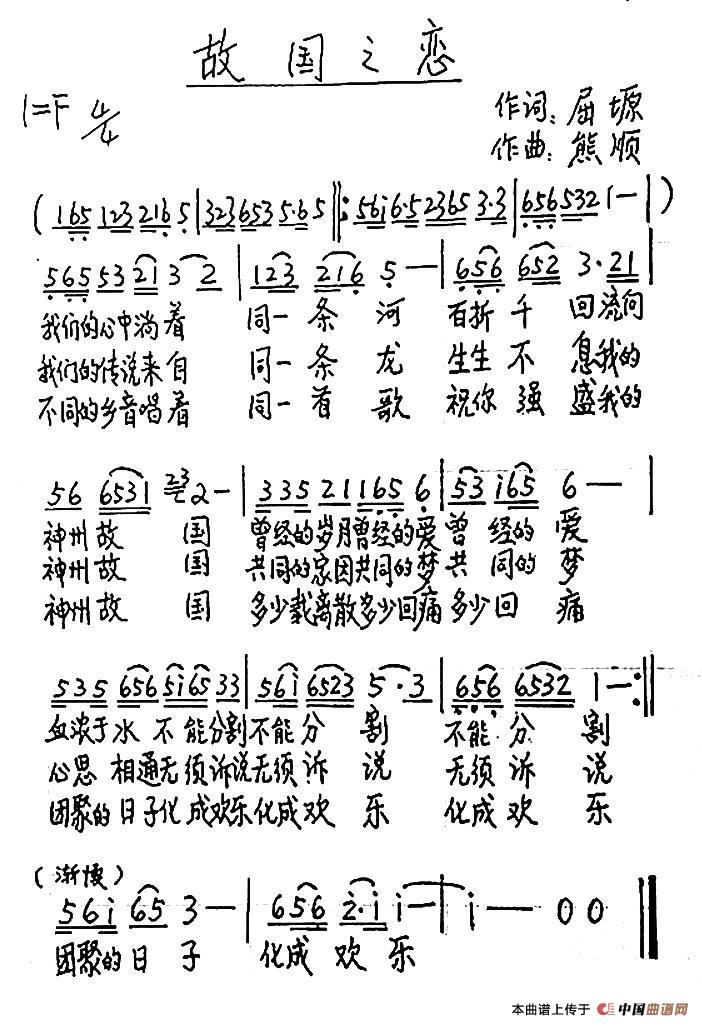 故国之恋
1=F 4/4
作词:屈塬
作曲:熊顺
( 165 123 216 5 | 323 653 5·6 5 ‖: 56i 6·5 2365 3·3 | 656 532 1 — | )
565 53 21 3 2 | 123 216 5 — | 656 652 3·21 |
我们的心中淌着 同一条河 百折千回流向
我们的传说来自 同一条龙 生生不息我的
不同的乡音唱着 同一首歌 祝你强盛我的
56 6531 23 2 — | 335 211165 6 | 53 i65 6 — |
神州故国 曾经的岁月曾经的爱曾经的爱
神州故国 共同的家园共同的梦共同的梦
神州故国 多少载离散多少回痛多少回痛
535 656 5i65 33 | 56i 6523 5·3 | 656 6532 1 — :‖
血浓于水 不能分割不能分割 不能分割
心思相通无须诉说无须诉说 无须诉说
团聚的日子化成欢乐化成欢乐 化成欢乐
(渐慢)
56i 65 3 — | 656 2·i i — | i — 0 0 ‖
团聚的日子 化成欢乐
本曲谱上传于 中国曲谱网